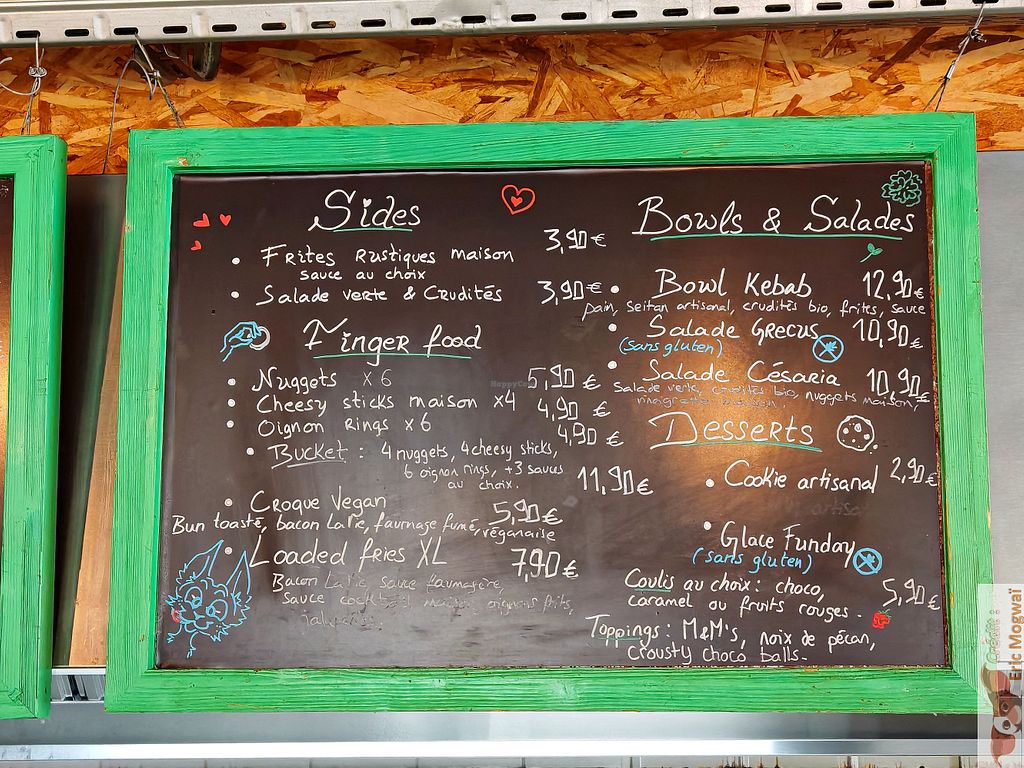 Sides
Frites Rustiques maison 3,90 €
sauce au choix
Salade verte & Crudités 3,90 €
Finger food
Nuggets x 6 5,90 €
Cheesy sticks maison x4 4,90 €
Oignon Rings x 6 4,90 €
Bucket : 4 nuggets, 4 cheesy sticks,
6 oignon rings, + 3 sauces
au choix. 11,90 €
Croque Vegan 5,90 €
Bun toasté, bacon La Vie, faumage fumé, véganaise
Loaded fries XL 7,90 €
Bacon La Vie, sauce faumagère,
sauce cocktail maison, oignons frits,
Bowls & Salades
Bowl Kebab 12,90 €
pain, seitan artisanal, crudités bio, frites, sauce
Salade Grecus 10,90 €
(sans gluten)
Salade Césaria 10,90 €
Salade verte, crudités bio, nuggets maison,
vinaigrette maison.
Desserts
Cookie artisanal 2,90 €
Glace Funday
(sans gluten)
Coulis au choix : choco, 5,90 €
caramel ou fruits rouges.
Toppings : M&M's, noix de pécan,
Crousty choco balls.
HappyCow
Eric Mogwaï